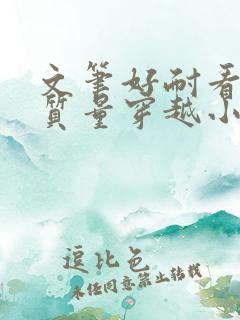 文笔好耐看
质量穿越小
逗比色
未经同意禁止转载